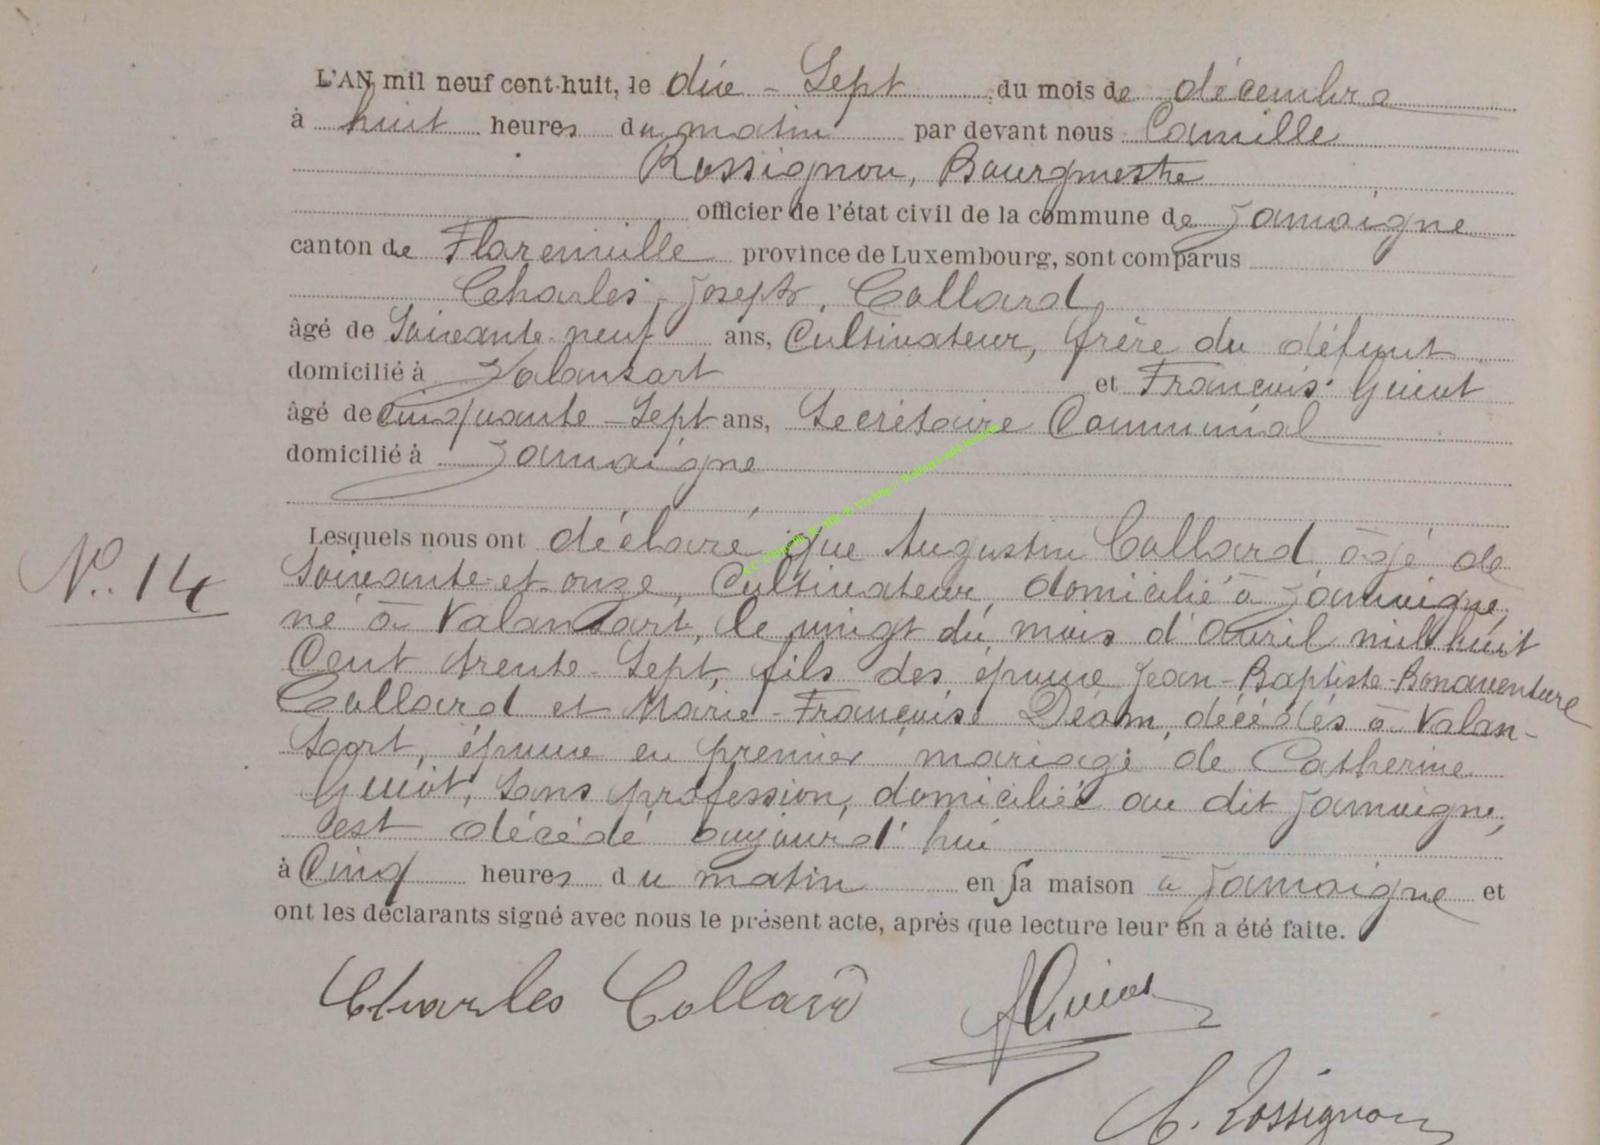 L'AN mil neuf cent-huit, le dix-Sept du mois de décembre
à huit heures du matin par devant nous Camille
Rossignon, Bourgmestre
officier de l'état civil de la commune de Jamoigne
canton de Florenville province de Luxembourg, sont comparus
Charles, Joseph, Collard
âgé de Soixante-neuf ans, Cultivateur, frère du défunt
domicilié à Valansart et François Guiot
âgé de cinquante-Sept ans, Secrétaire Communal
domicilié à Jamoigne
Lesquels nous ont déclaré que Augustin Collard âgé de
N° 14
Soixante-et-onze, Cultivateur, domicilié à Jamoigne,
né à Valansart, le vingt du mois d'avril mil huit
Cent trente-Sept, fils des époux Jean-Baptiste-Bonaventure
Collard et Marie-Françoise Déom, décédés à Valan-
Sart, époux en premier mariage de Catherine
Guiot, Sans profession, domiciliée au dit Jamoigne,
est décédé aujourd'hui
à Cinq heures du matin en sa maison à Jamoigne et
ont les déclarants signé avec nous le présent acte, après que lecture leur en a été faite.
Charles Collard
Guiot
C. Rossignon